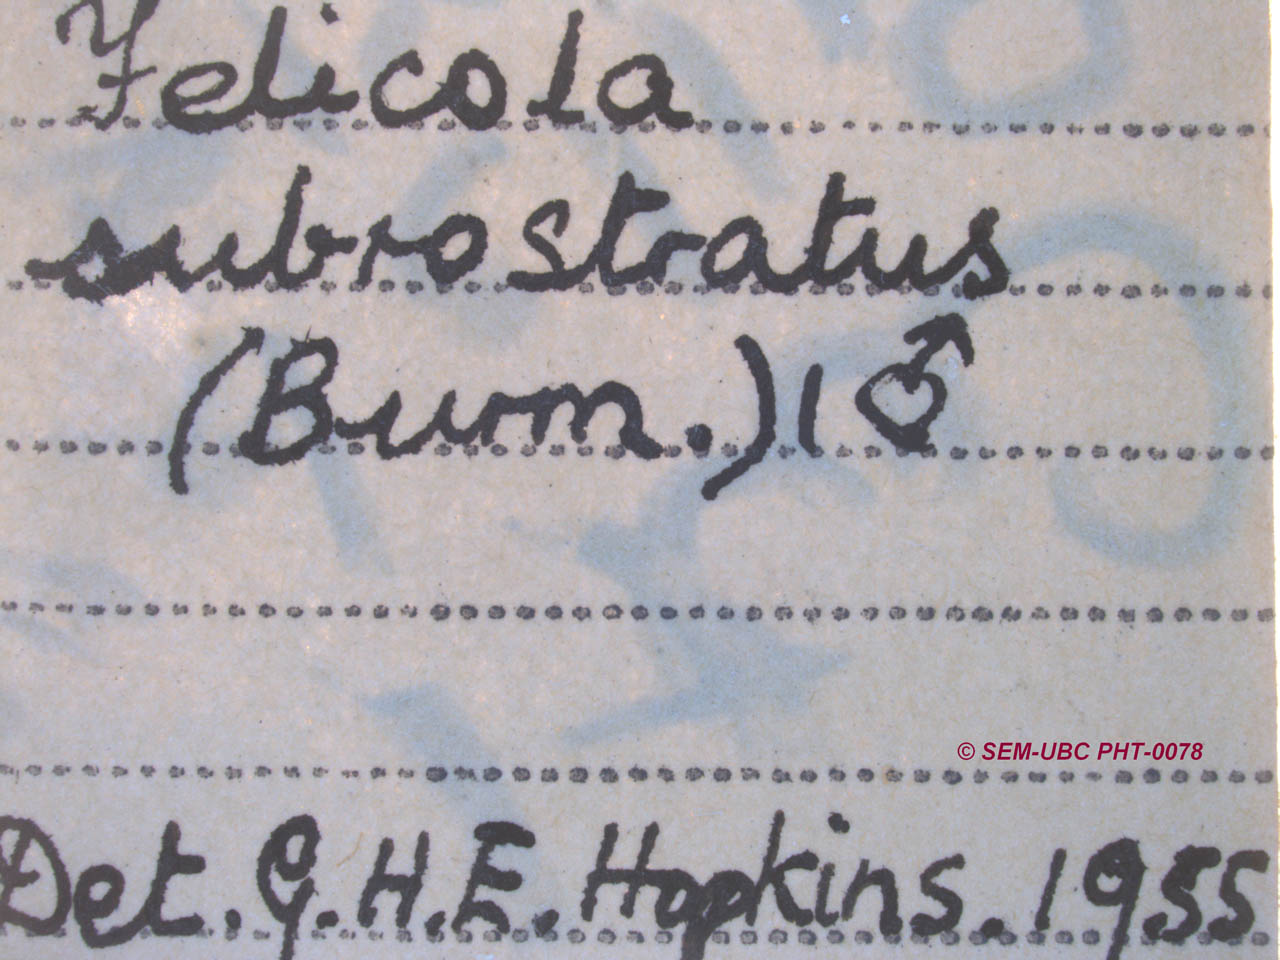 Felicola
subrostratus
(Burm.) 1 ♂
© SEM-UBC PHT-0078
Det. G.H.E. Hopkins. 1955